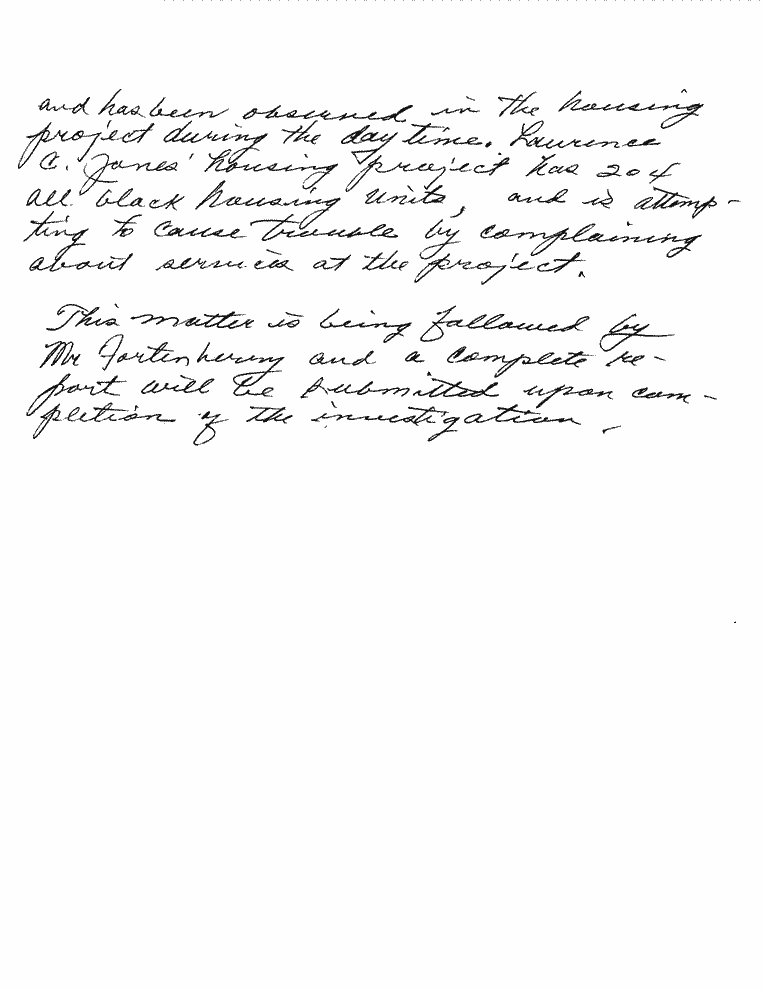 and has been observed in the housing
project during the day time. Laurence
C. Jones' housing project has 204
all black housing units, and is attemp-
ting to cause trouble by complaining
about services at the project.
This matter is being followed by
Mr Fortenberry and a complete re-
port will be submitted upon com-
pletion of the investigation.